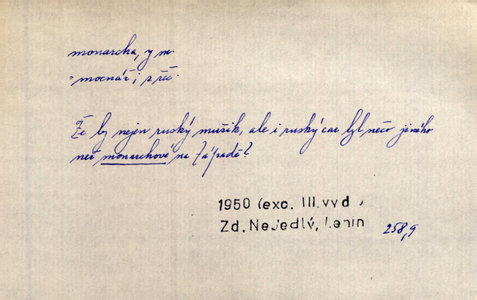 monarcha, y m.
= mocnář; z řeč.
Že by nejen ruský mužik, ale i ruský car byl něco jiného
než monarchové na Západě?
1950 (exc. III. vyd.)
Zd. Nejedlý, Lenin
258,9